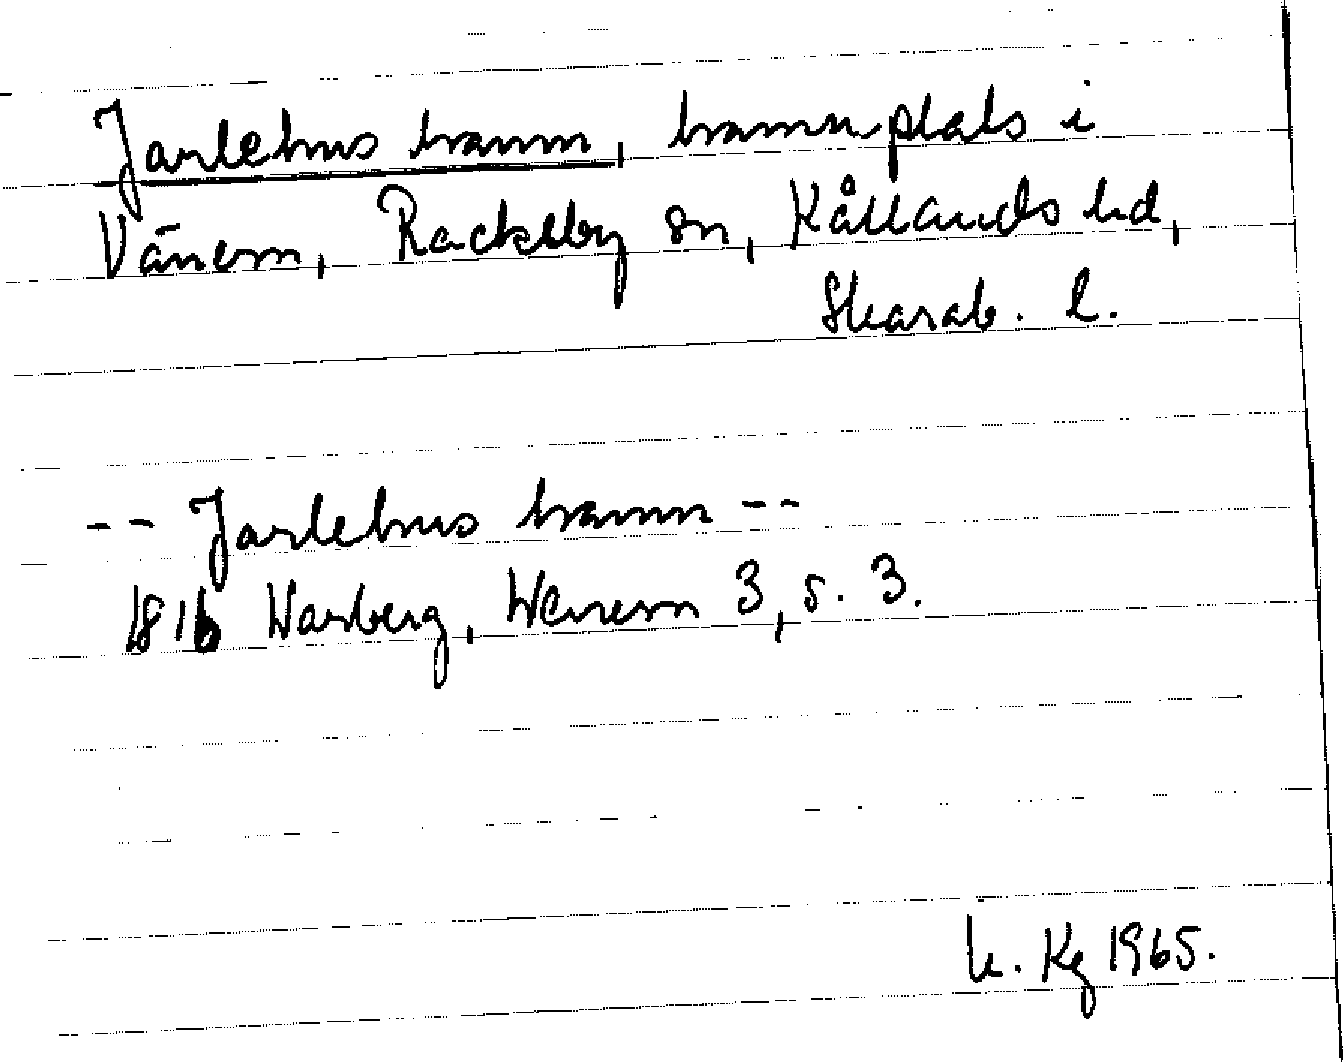 Jarlehus hamn, hamnplats i
Vänern, Rackeby sn, Kållands hd,
Skarab. l.
-- Jarlehus hamn --
1816 Warberg, Wenern 3, s. 3.
h. Kg 1965.